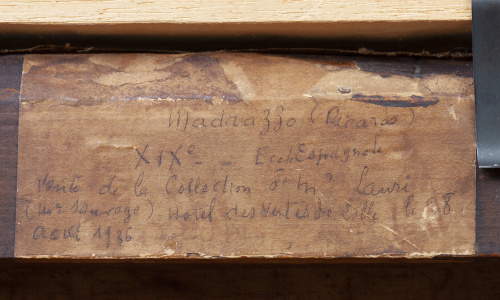 Madrazzo (Ricardo)
XIXe - - Ecol Espagnole
Vente de la Collection de Mr
Sauvage) Hotel des Ventes de Lille le 28
Aout 1936